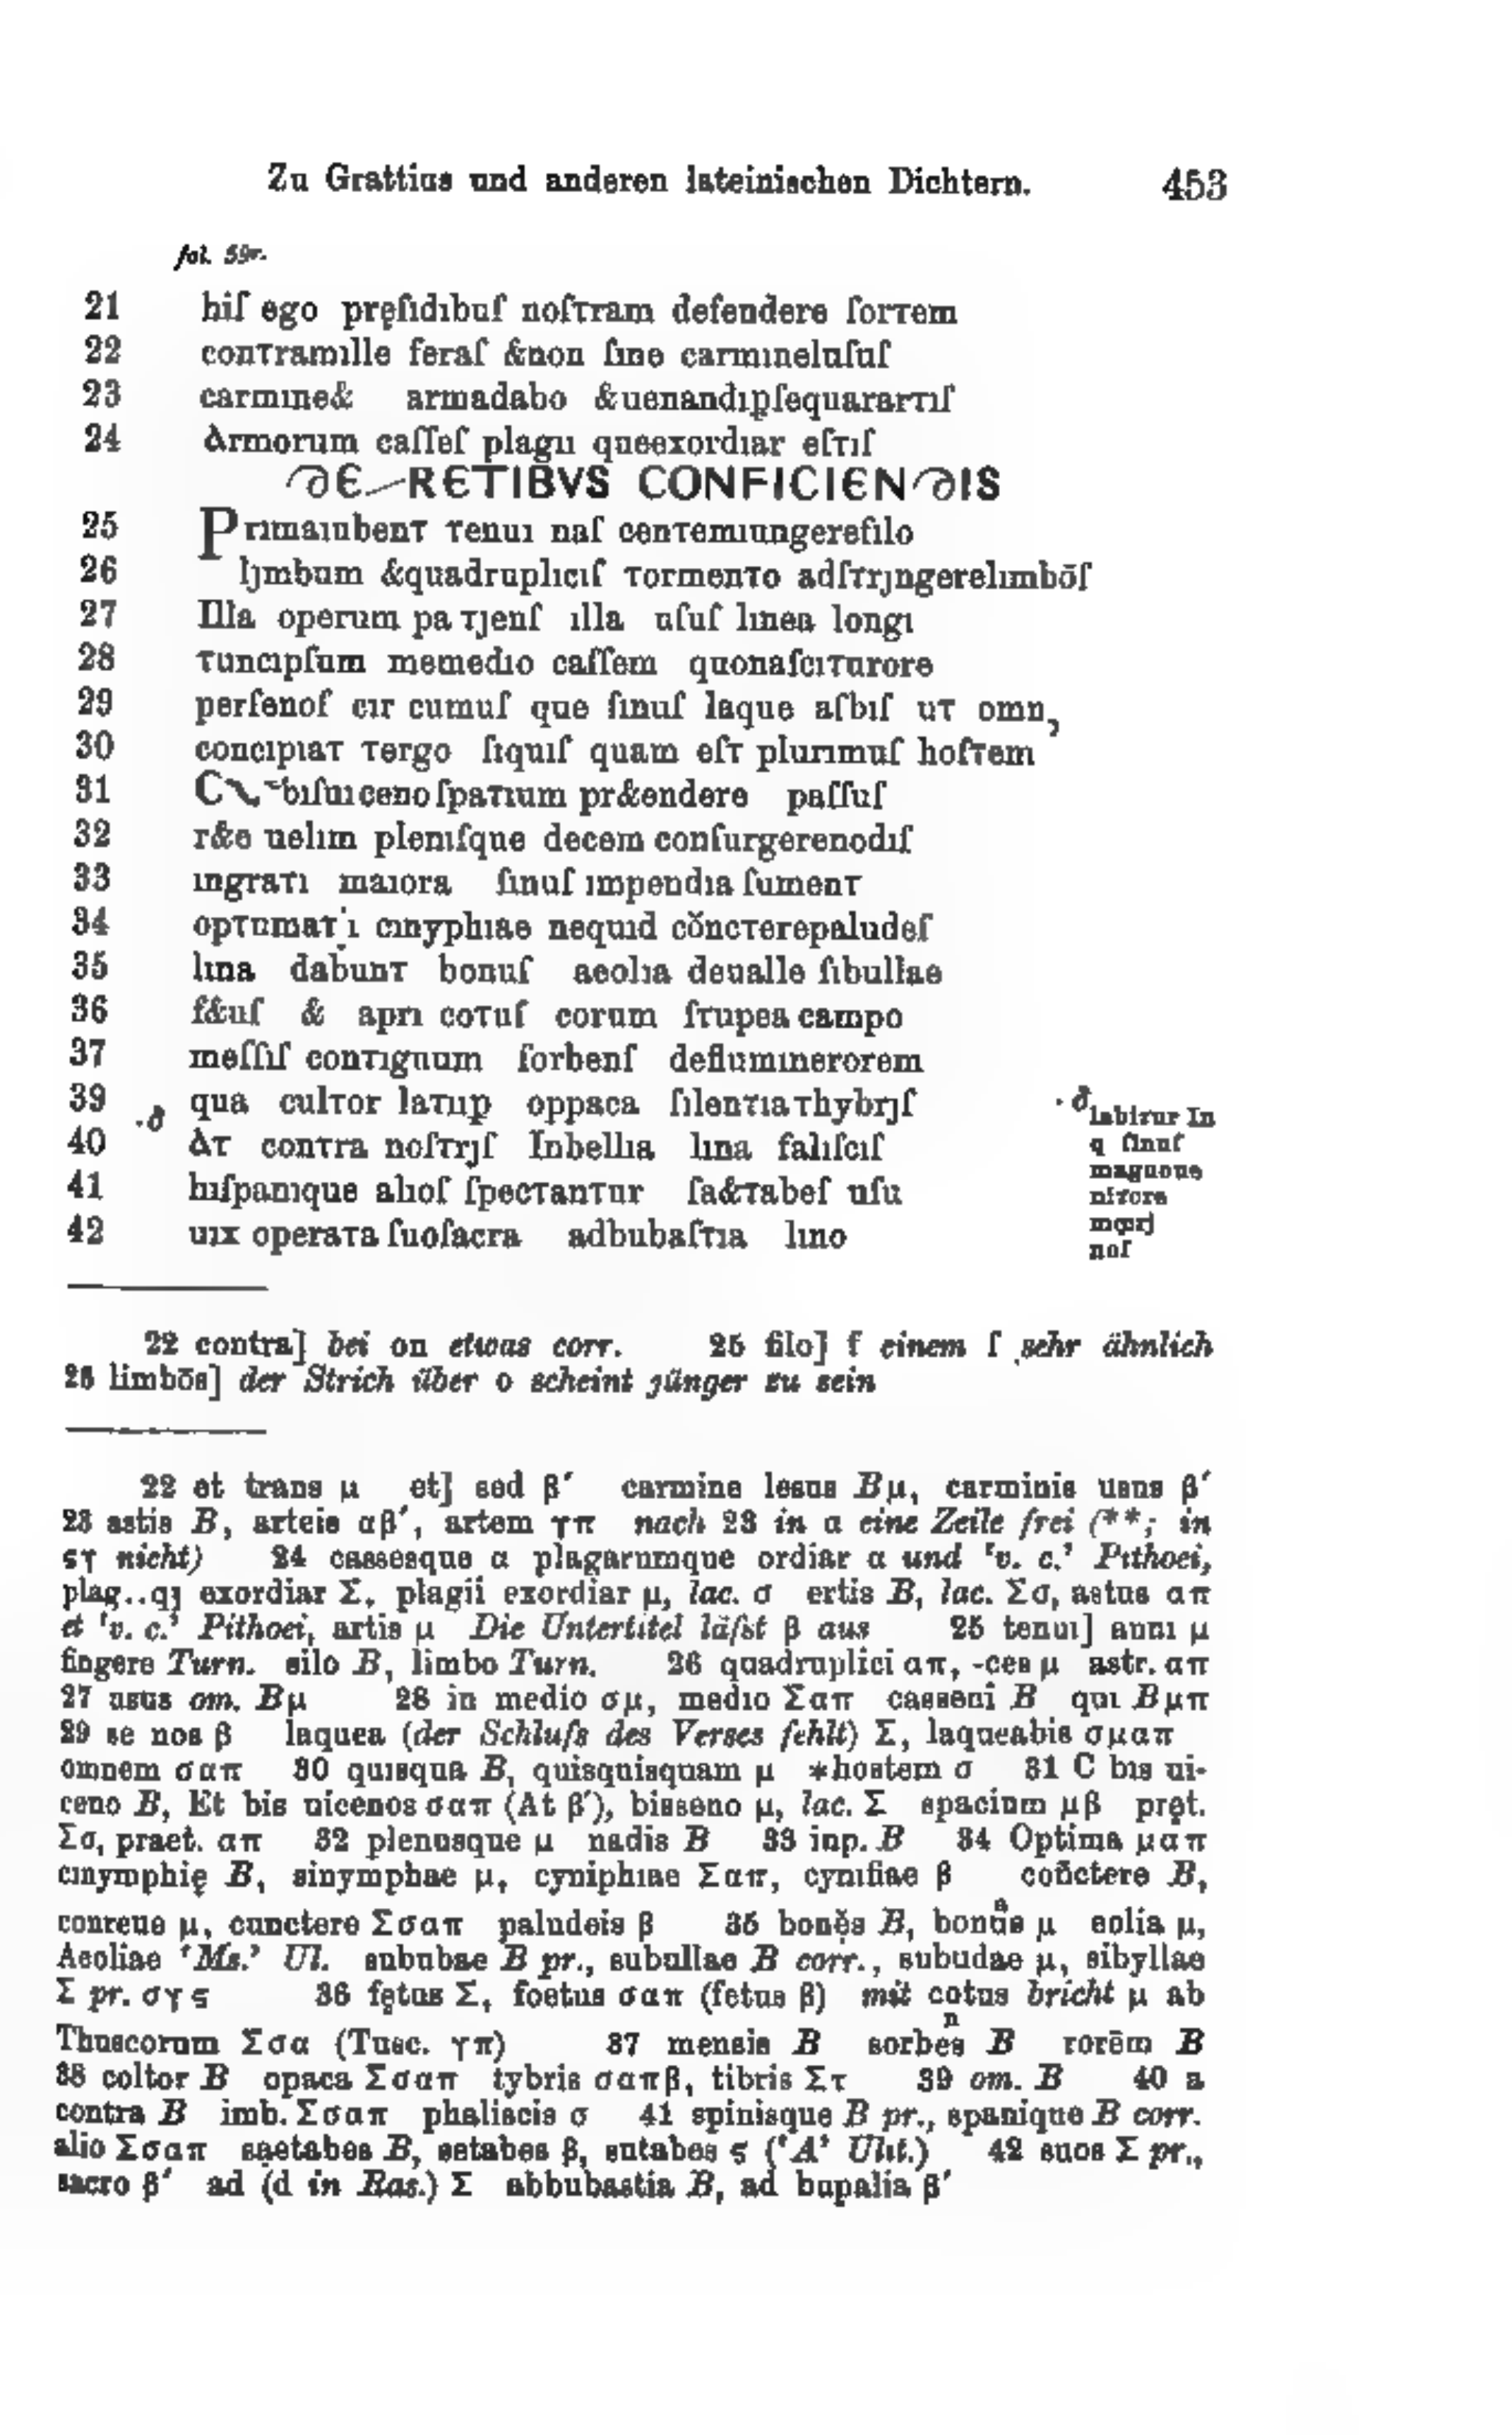 Zu Grattius und anderen lateinischen Dichtern. 453
fol. 59r.
21 hiſ ego pręſidıbuſ noſtram defendere ſortem
22 contramılle feraſ &non ſıne carmıneluſuſ
23 carmıne& armadabo &uenandıꝑſequarartıſ
24 Armorum caſſeſ plagıı queexordıar eſtıſ
DE RETIBVS CONFICIENDIS
25 Prımaıubent tenuı naſ centemıungerefılo
26 lȷmbum &quadruplıcıſ tormento adſtrȷngerelımbōſ
27 Illa operum pa tȷenſ ılla uſuſ lınea longı
28 tuncıpſum memedıo caſſem quonaſcıturore
29 perſenoſ cır cumuſ que ſınuſ laque aſbıſ ut omn,
30 concıpıat tergo ſıquıſ quam eſt plurımuſ hoſtem
31 C bıſuıcenoſpatıum pr&endere paſſuſ
32 r&e uelım plenıſque decem conſurgerenodıſ
33 ıngratı maıora ſınuſ ımpendıa ſument
34 optumat ı cınyphıae nequıd cŏncterepaludeſ
35 lına dabunt bonuſ aeolıa deualle ſıbullae
36 f&uſ & aprı cotuſ corum ſtupea campo
37 meſſıſ contıguum ſorbenſ deflumınerorem
39 qua cultor latuꝑ oppaca ſılentıathybrȷſ
40 At contra noſtrȷſ Inbellıa lına falıſcıſ
41 hıſpanıque alıoſ ſpectantur ſa&tabeſ uſu
42 uıx operata ſuoſacra adbubaſtıa lıno
·ð
·ð labıtur In
q ſınuſ
magnoue
nıtore
mȷ
noſ
22 contra] bei on etwas corr. 25 filo] f einem ſ sehr ähnlich
26 limbōs] der Strich über o scheint jünger zu sein
22 et trans μ et] sed β′ carmine lesus Bμ, carminis usus β′
23 astis B, arteis αβ′, artem γπ nach 23 in α eine Zeile frei (**; in
ςτ nicht) 24 cassesque α plagarumque ordiar α und 'v. c.' Pithoei,
plag..qȷ exordiar Σ, plagii exordiar μ, lac. σ ertis B, lac. Σσ, astus απ
et 'v. c.' Pithoei, artis μ Die Untertitel läſst β aus 25 tenuı] annı μ
fingere Turn. silo B, limbo Turn. 26 quadruplici απ, -ces μ astr. απ
27 usus om. Bμ 28 in medio σμ, medıo Σαπ casseni B quı Bμπ
29 se nos β laquea (der Schluſs des Verses fehlt) Σ, laqueabis σμαπ
omnem σαπ 30 quısqua B, quisquisquam μ *hostem σ 31 C bıs ui-
ceno B, Et bis uicenos σαπ (At β′), bisseno μ, lac. Σ spacium μβ pręt.
Σσ, praet. απ 32 plenusque μ nadis B 33 inp. B 34 Optima μαπ
cınymphię B, sinymphae μ, cyniphıae Σαπ, cynıfiae β cōnctere B,
conreue μ, cunctere Σσαπ paludeis β 35 bonės B, bonus μ eolia μ,
Aeoliae 'Ms.' Ul. sububae B pr., subullae B corr., subudae μ, sibyllae
Σ pr. σγς 36 fętus Σ, foetus σαπ (fetus β) mit cotus bricht μ ab
Thuscorum Σσα (Tusc. γπ) 37 mensis B sorbes B rorēm B
38 coltor B opaca Σσαπ tybris σαπβ, tibris Στ 39 om. B 40 a
contra B imb. Σσαπ phaliscis σ 41 spinisque B pr., spanique B corr.
alio Σσαπ saetabes B, setabes β, sutabes ς ('A' Ulit.) 42 suos Σ pr.,
sacro β′ ad (d in Ras.) Σ abbubastia B, ad bupalia β′